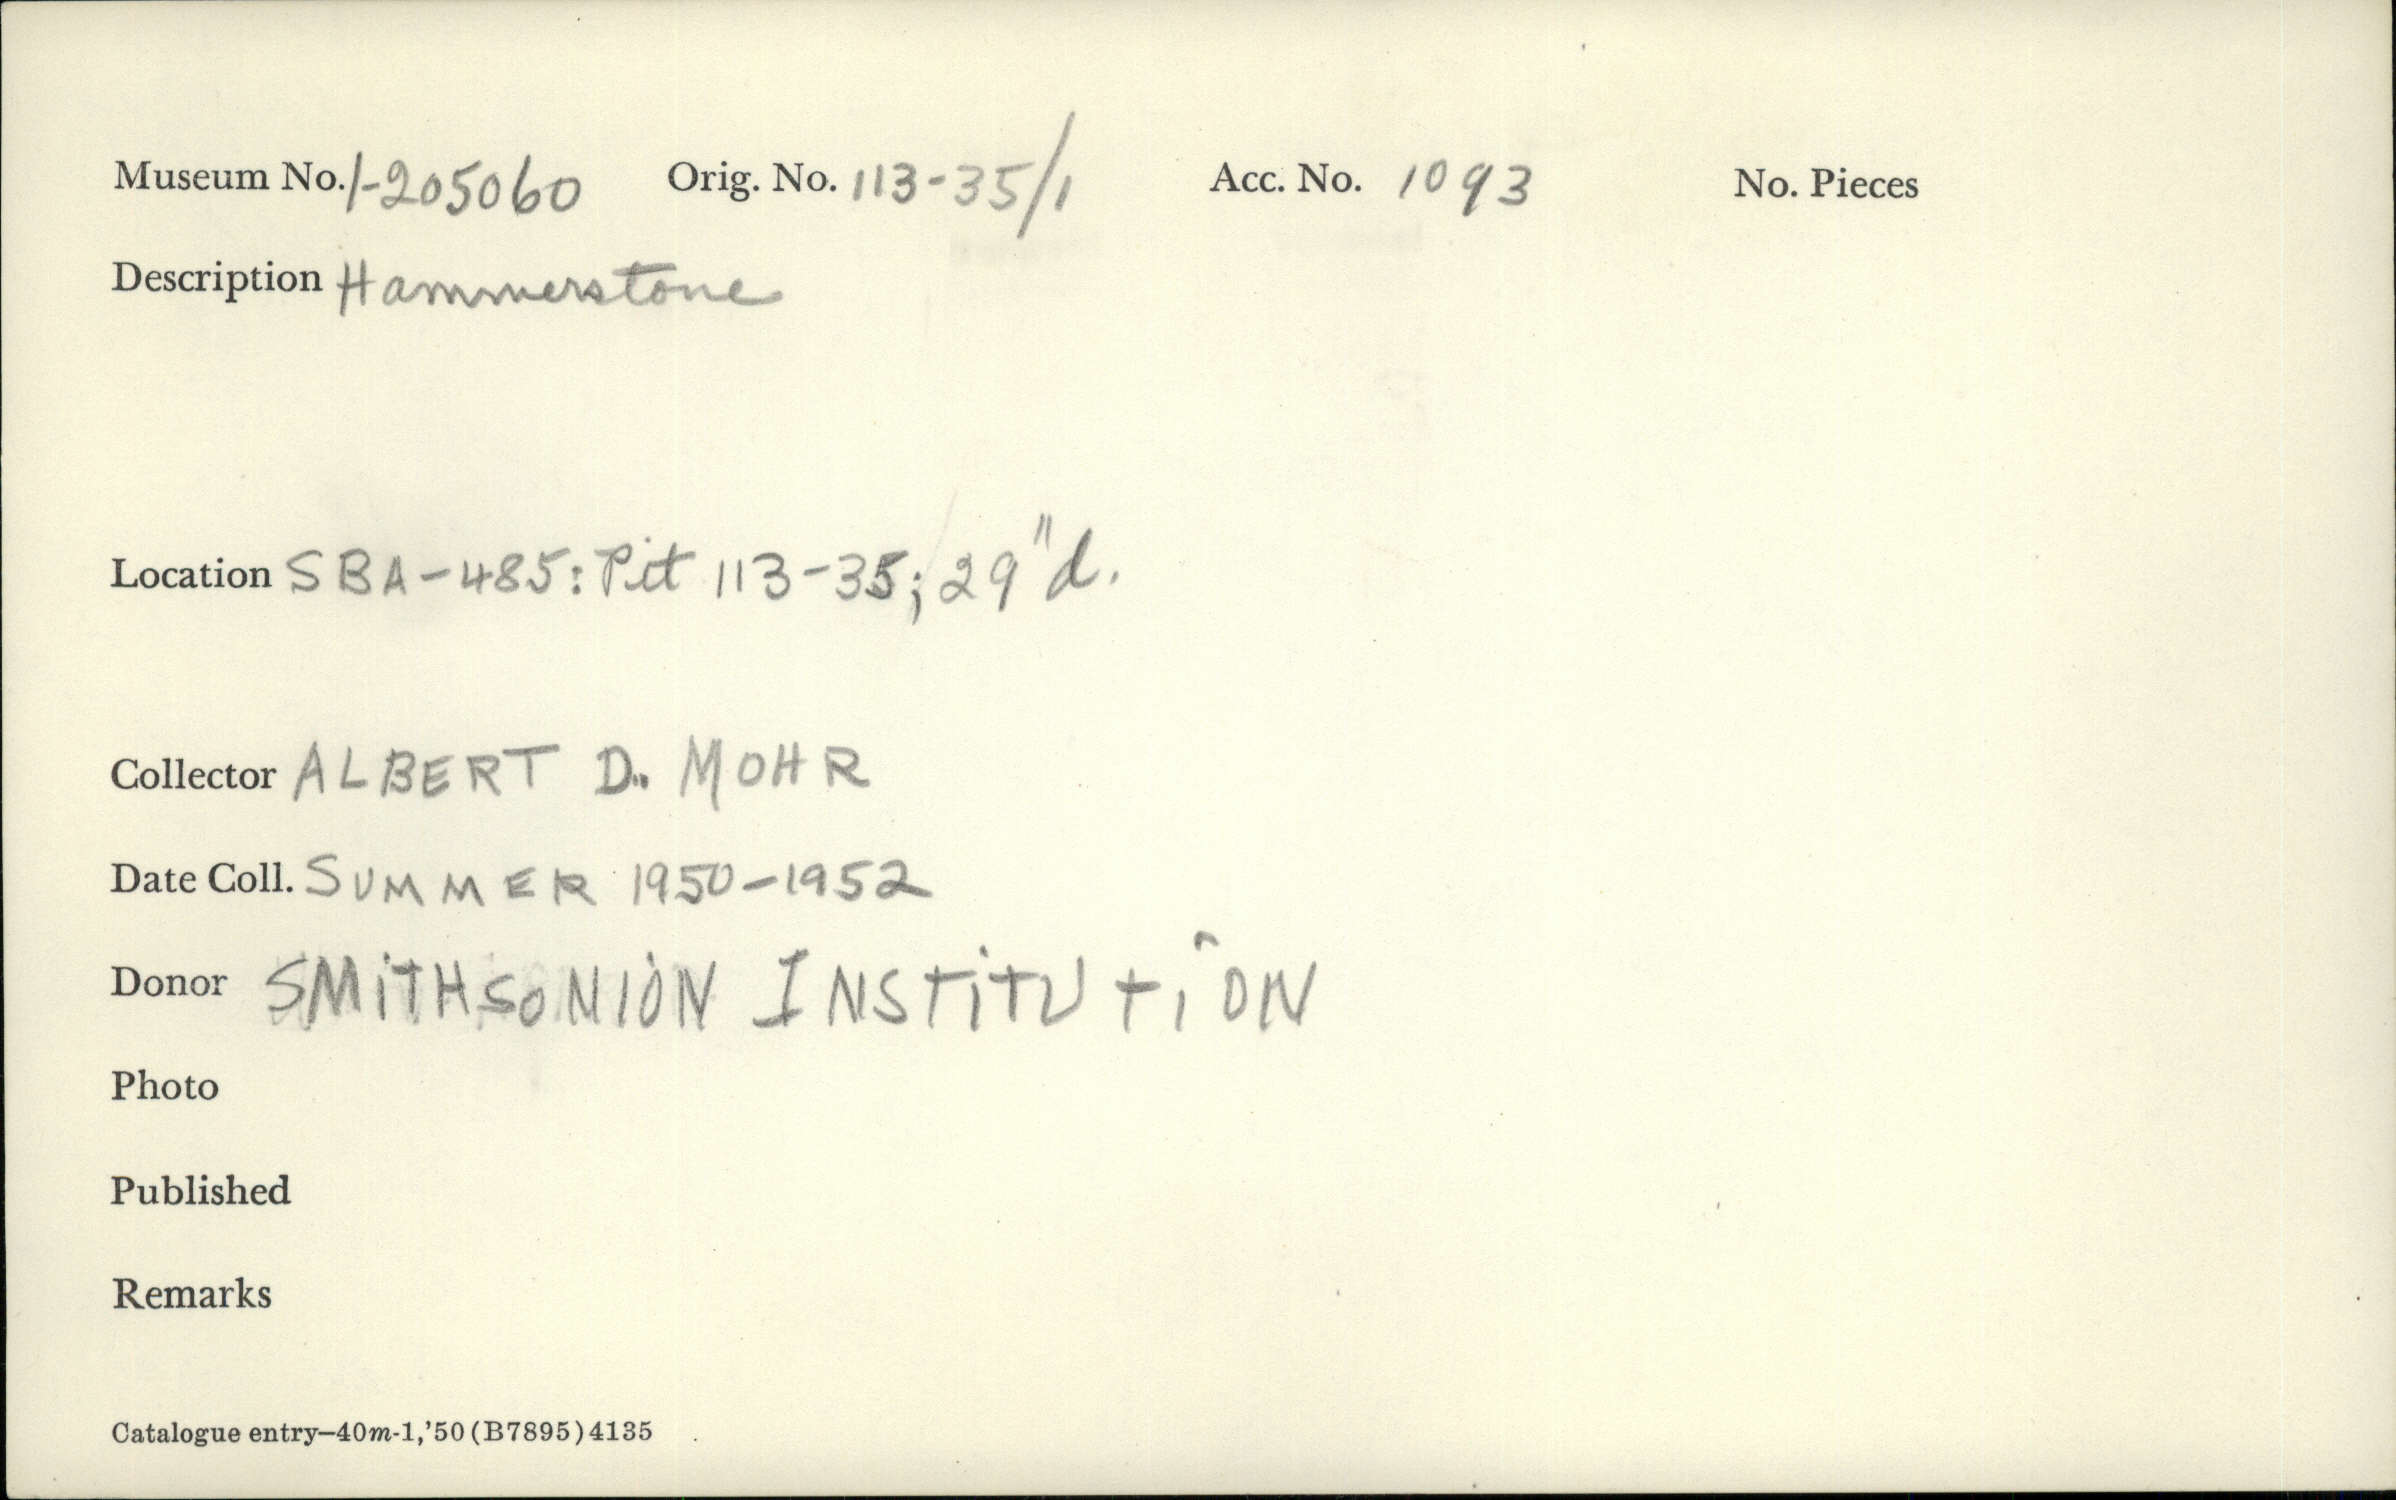 Museum No. 1-205060 Orig. No. 113-35/1 Acc. No. 1093 No. Pieces
Description Hammerstone
Location SBA-485: Pit 113-35; 29" d.
Collector ALBERT D. MOHR
Date Coll. SUMMER 1950-1952
Donor SMITHSONION INSTITUTION
Photo
Published
Remarks
Catalogue entry—40m-1,'50(B7895)4135